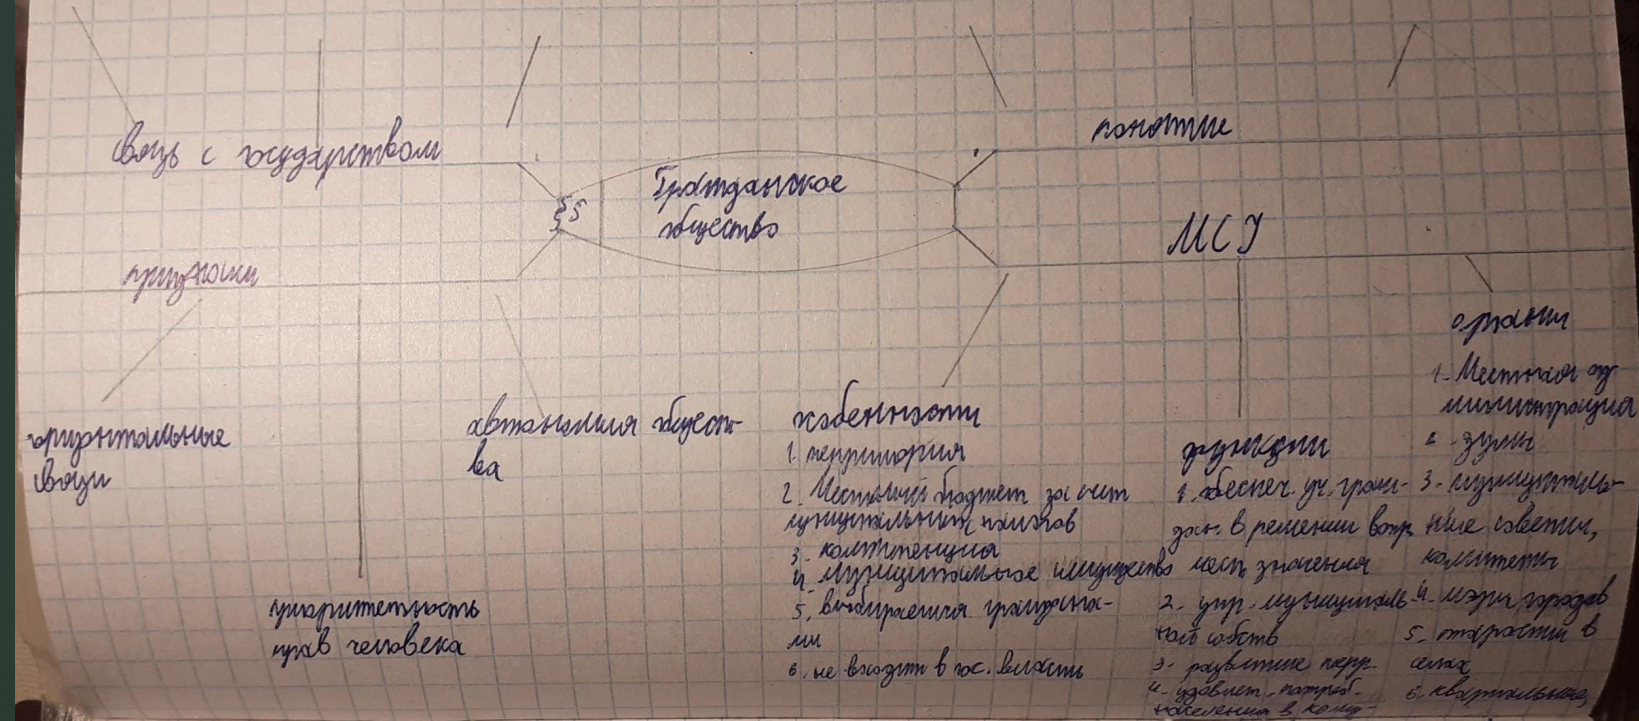 связь с государством
Гражданское
общество
понятие
МСУ
признаки
горизонтальные
связи
приоритетность
прав человека
автономия общест-
ва
особенности
1. территория
2. Местный бюджет за счет
муниципальных налогов
3. компетенция
4. муниципальное имущество
5. выбирается граждана-
ми
6. не входят в гос. власть
функции
1. обеспеч. уч. граж-
дан. в решении вопр.
мест. значения
2. упр. муниципаль-
ной собств
3. развитие терр.
4. удовлет. потреб.
населения в кому-
органы
1. Местная ад-
министрация
2. думы
3. муниципаль-
ные советы,
комитеты
4. мэры городов
5. старосты в
селах
6. квартальные,